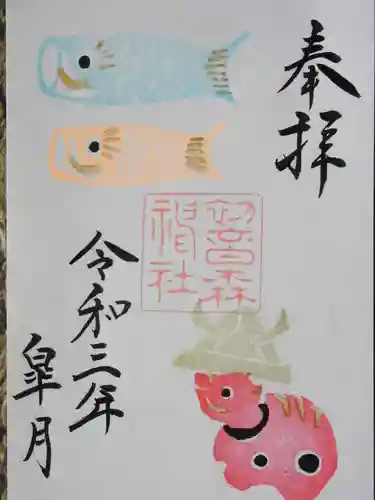 奉拝
初音森
神社
令和三年
皐月